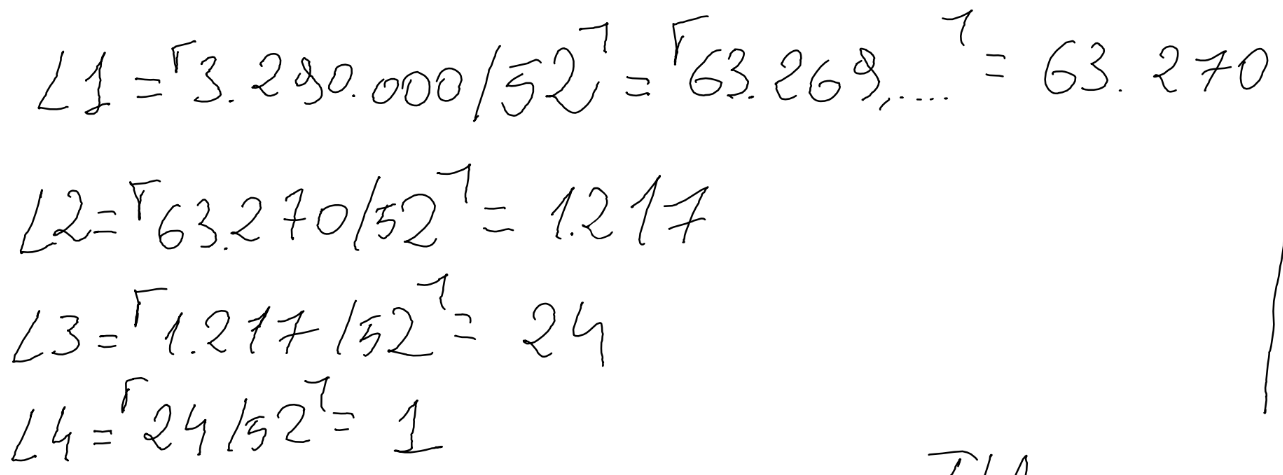 L1 = ⌈3.290.000/52⌉ = ⌈63.269,....⌉ = 63.270
L2 = ⌈63.270/52⌉ = 1.217
L3 = ⌈1.217/52⌉ = 24
L4 = ⌈24/52⌉ = 1